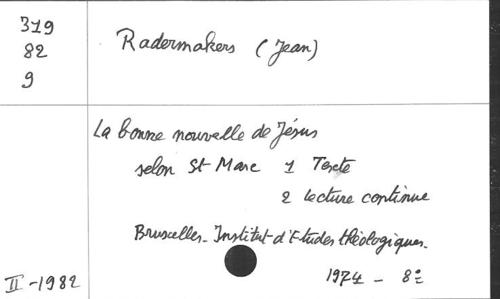 319
82
9
Radermakers (Jean)
La bonne nouvelle de Jésus
selon St Marc 1 Texte
2 lecture continue
Bruxelles. Institut d'Etudes théologiques.
1974 - 8°
II-1982